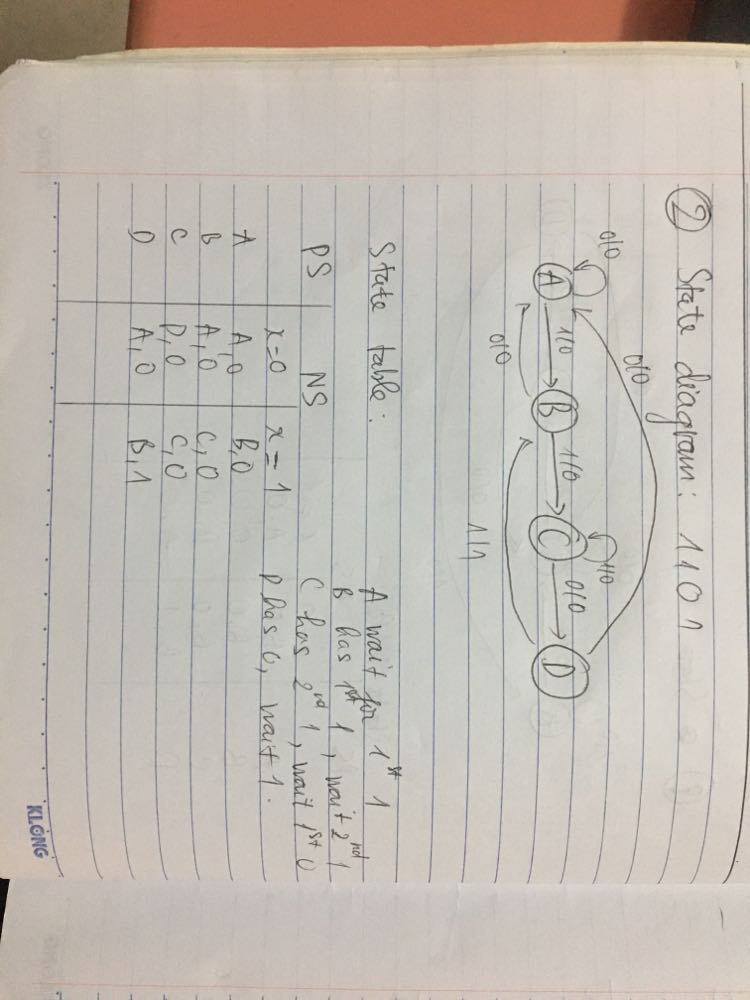 ② State diagram: 1101
0/0
0/0
A 1/0 B 1/0 C 0/0 D
1/0
0/0
1/1
State table:
PS NS
x=0 x=1
A A,0 B,0
B A,0 C,0
C D,0 C,0
D A,0 B,1
A wait for 1st 1
B has 1st 1, wait 2nd 1
C has 2nd 1, wait 1st 0
D has 0, wait 1.
KLONG